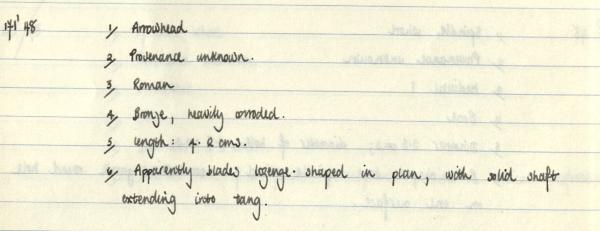 171' 48 1/ Arrowhead
2/ Provenance unknown.
3/ Roman
4/ Bronze, heavily corroded.
5/ length: 4·2 cms.
6/ Apparently blades lozenge-shaped in plan, with solid shaft
extending into tang.